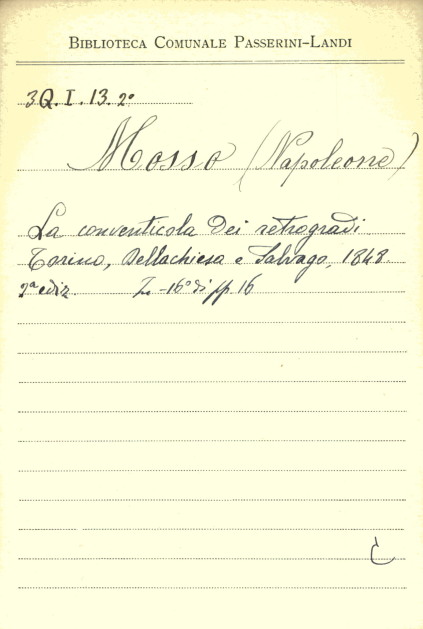 BIBLIOTECA COMUNALE PASSERINI-LANDI
3Q. I. 13. 2°
Mosso (Napoleone)
La conventicola dei retrogradi
Torino, Dellachiesa e Salvago, 1848.
2ª ediz. In-16° di pp. 16